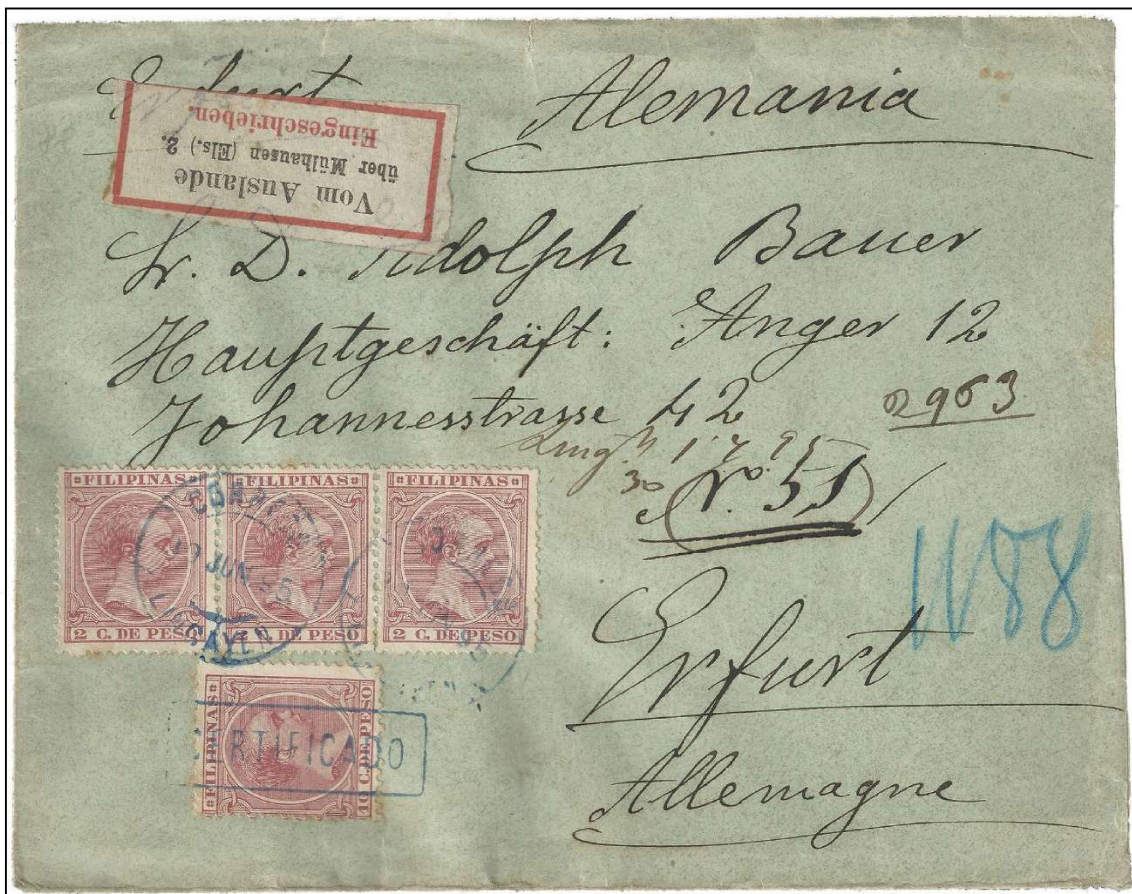 Erfurt Alemania
Vom Auslande
über Mülhausen (Els.) 2.
Eingeschrieben.
Sr. D. Adolph Bauer
Hauptgeschäft: Anger 12
Johannesstrasse 42
2963
1 7 95
30
No. 51
1188
FILIPINAS FILIPINAS FILIPINAS
CORREOS
JUN 95
2 C. DE PESO 2 C. DE PESO 2 C. DE PESO
Erfurt
FILIPINAS
10 C. DE PESO
CERTIFICADO
Allemagne